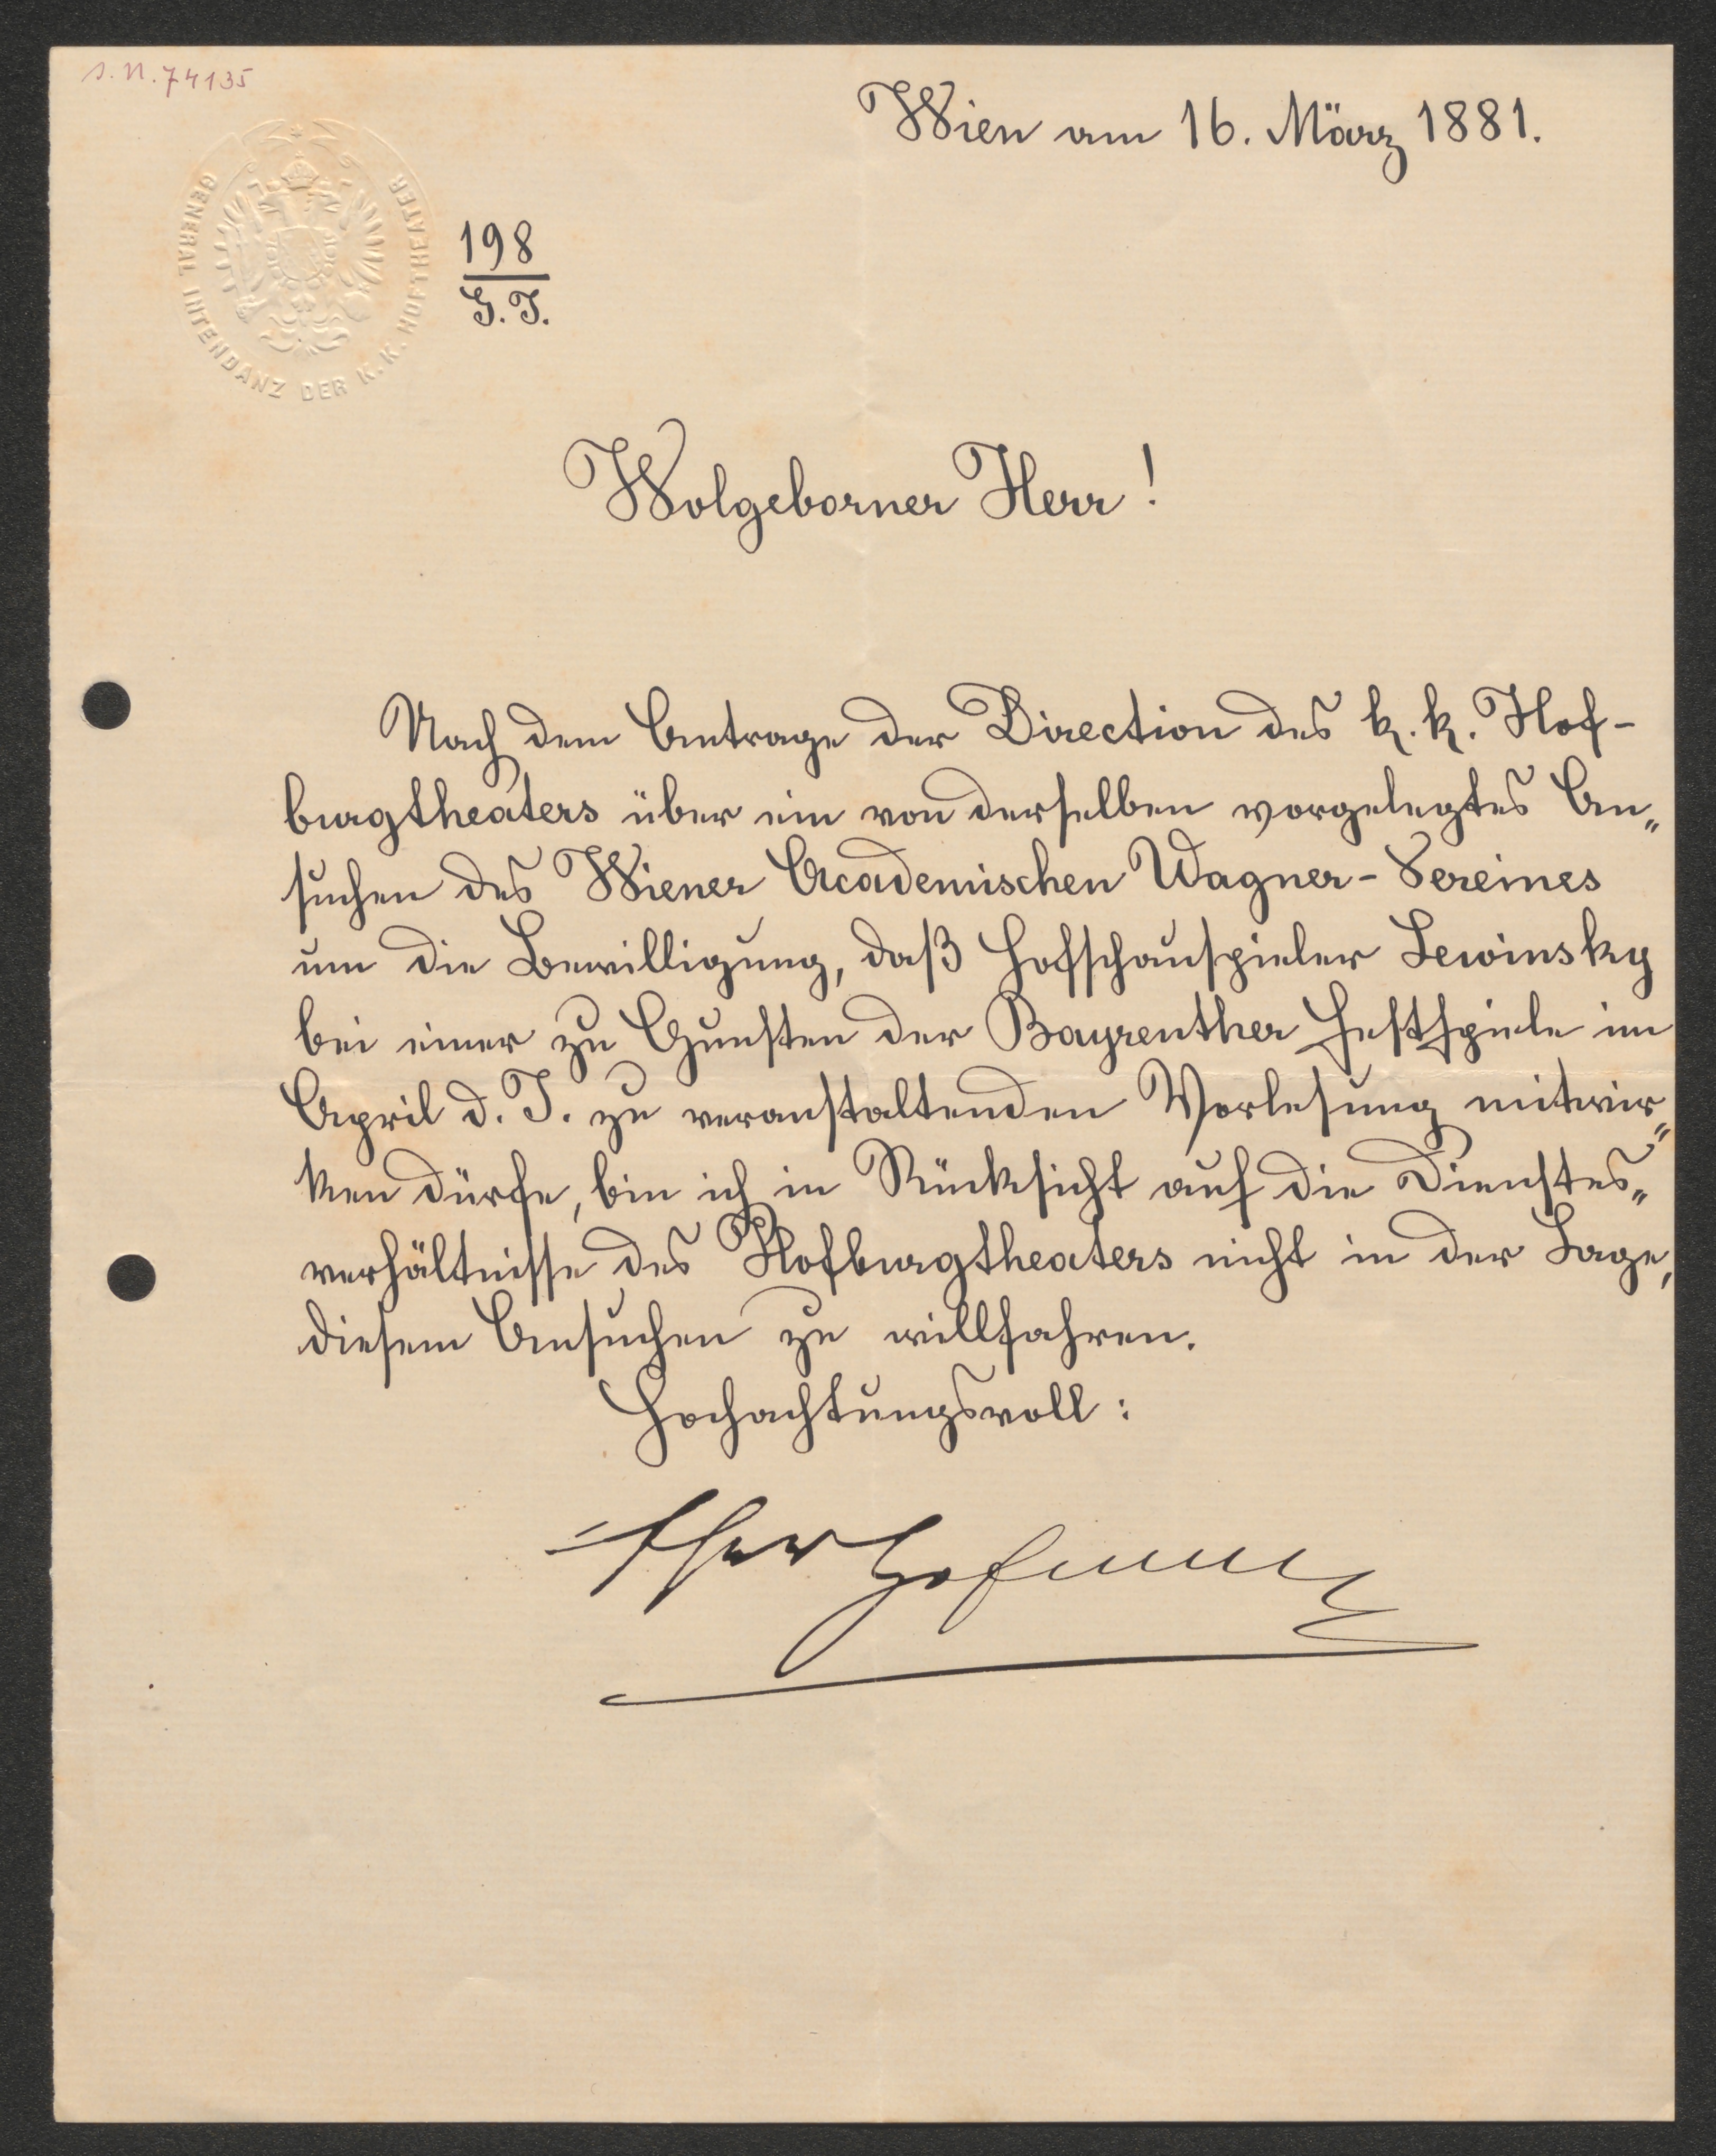 I.N. 74135
Wien am 16. März 1881.
GENERAL INTENDANZ DER K.K. HOFTHEATER
198
G.I.
Wolgeborner Herr!
Nach dem Antrage der Direction des k. k. Hof-
burgtheaters über ein von derselben vorgelegtes An„
suchen des Wiener Academischen Wagner-Vereines
um die Bewilligung, daß Hofschauspieler Lewinsky
bei einer zu Gunsten der Bayreuther Festspiele im
April d. J. zu veranstaltenden Vorlesung mitwir„
ken dürfe, bin ich in Rücksicht auf die Dienstes„
verhältnisse des Hofburgtheaters nicht in der Lage,
diesem Ansuchen zu willfahren.
Hochachtungsvoll:
Hofmann